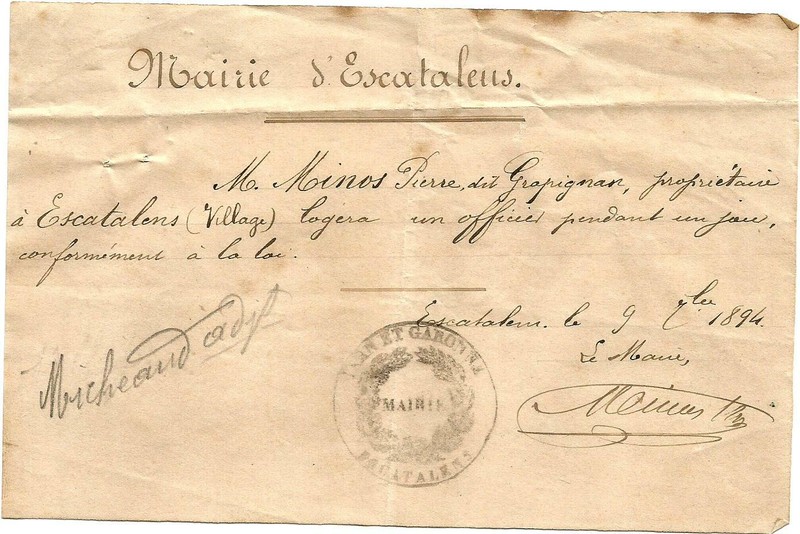 Mairie d'Escatalens.
M. Minos Pierre, dit Grapignan, propriétaire
à Escatalens (Village) logera un officier pendant un jour,
conformément à la loi.
Escatalens le 9 7bre 1894.
Le Maire,
Micheaud adjt
TARN ET GARONNE
MAIRIE
ESCATALENS
Minos